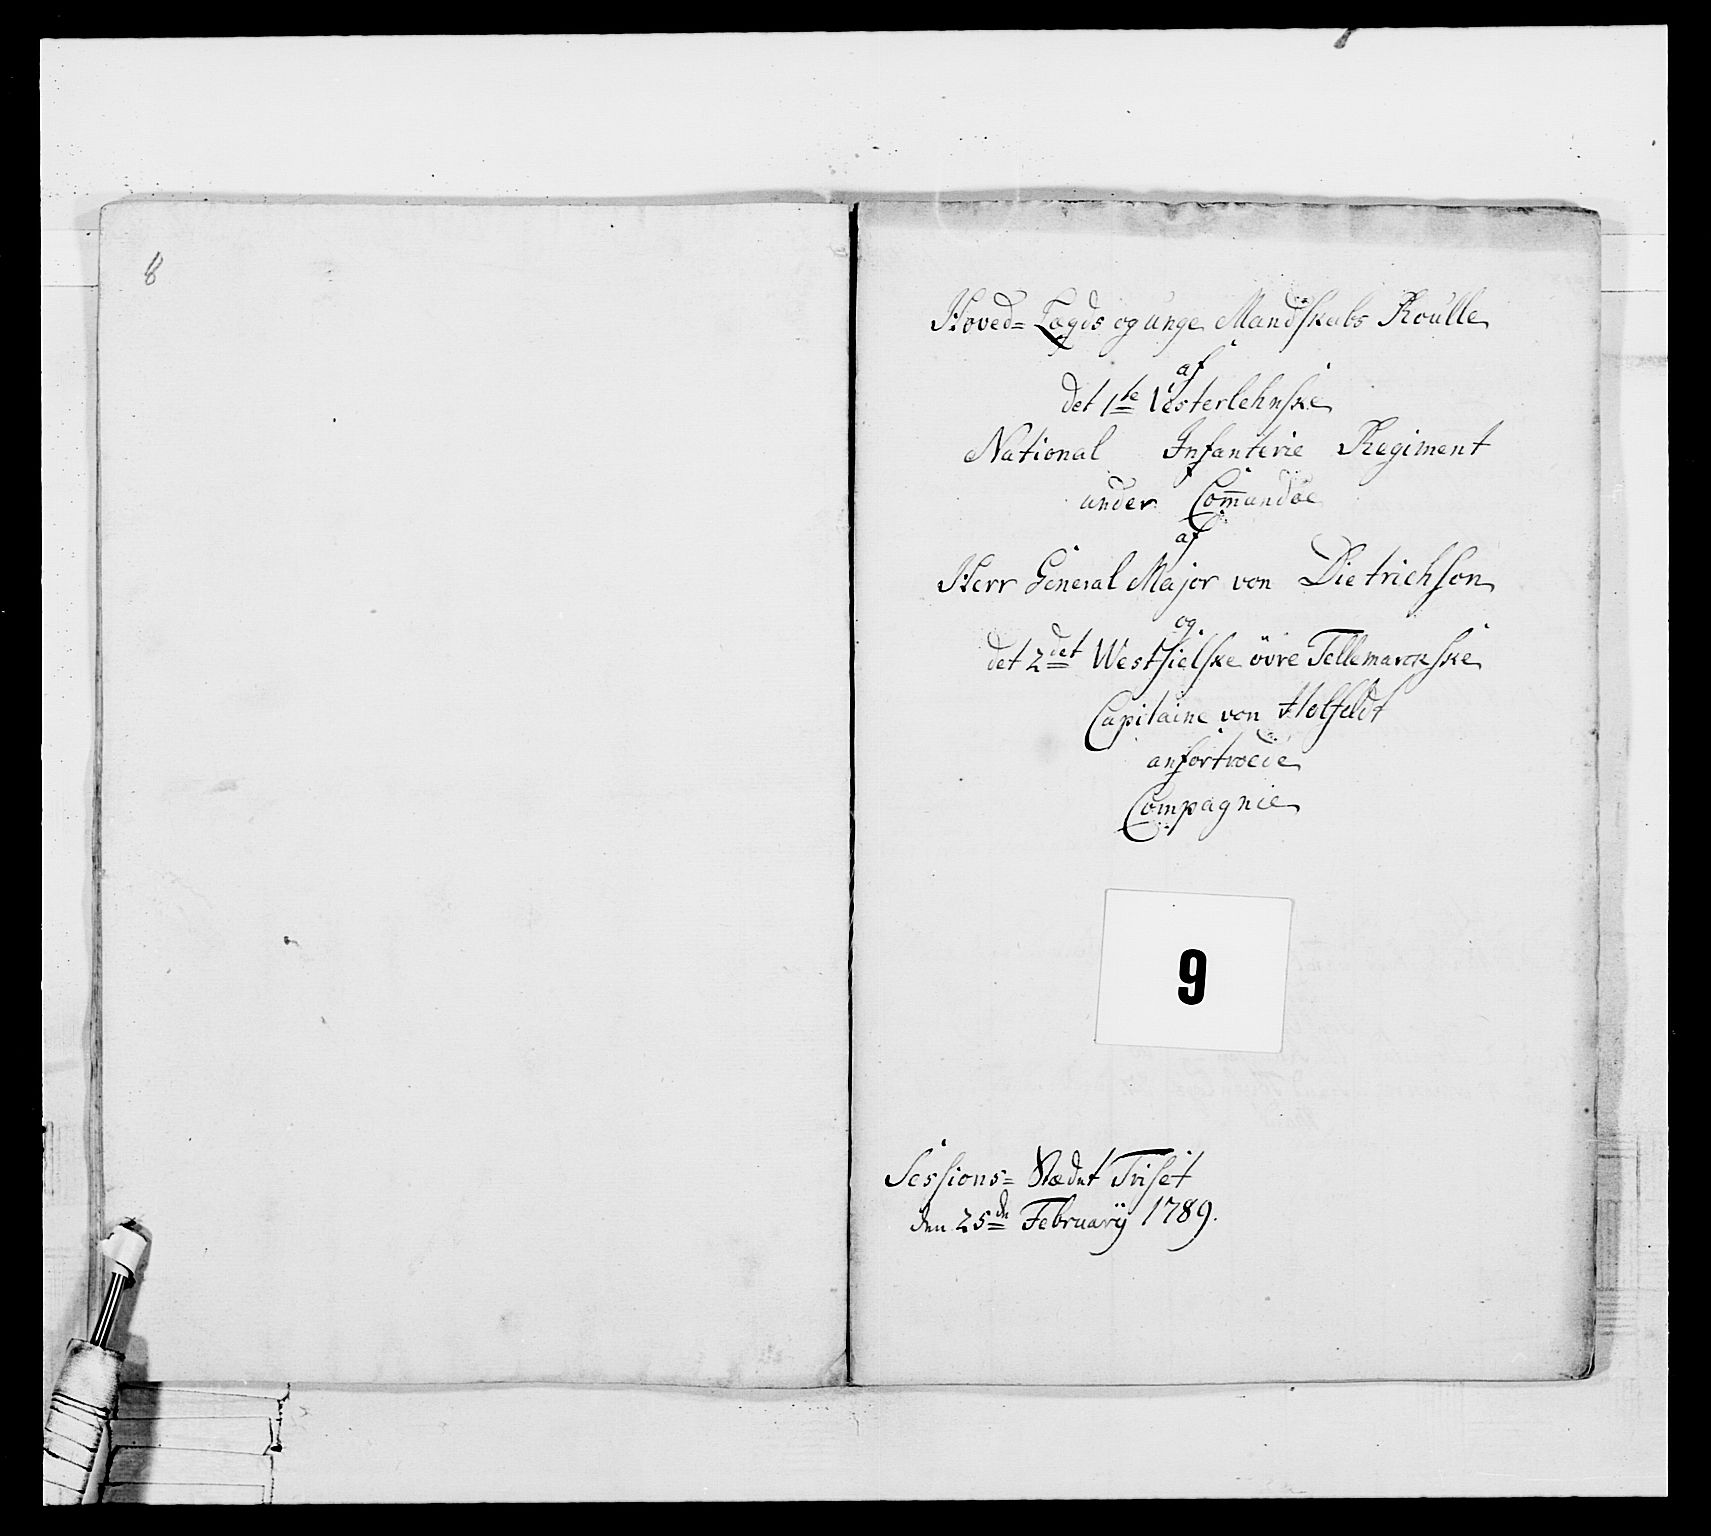 8
Hoved= Lægds og unge Mandskabs Roulle
af
det 1te Vesterlehnske
National Infanterie Regiment
under Com̄andoe
af
Herr General Major von Dietrichson
og
det 2det Westfielske övre Tellemarckske
Capitaine von Holfeldt
anfortroede
Compagnie
9
Sessions= Stædet Triset
den 25de February 1789.